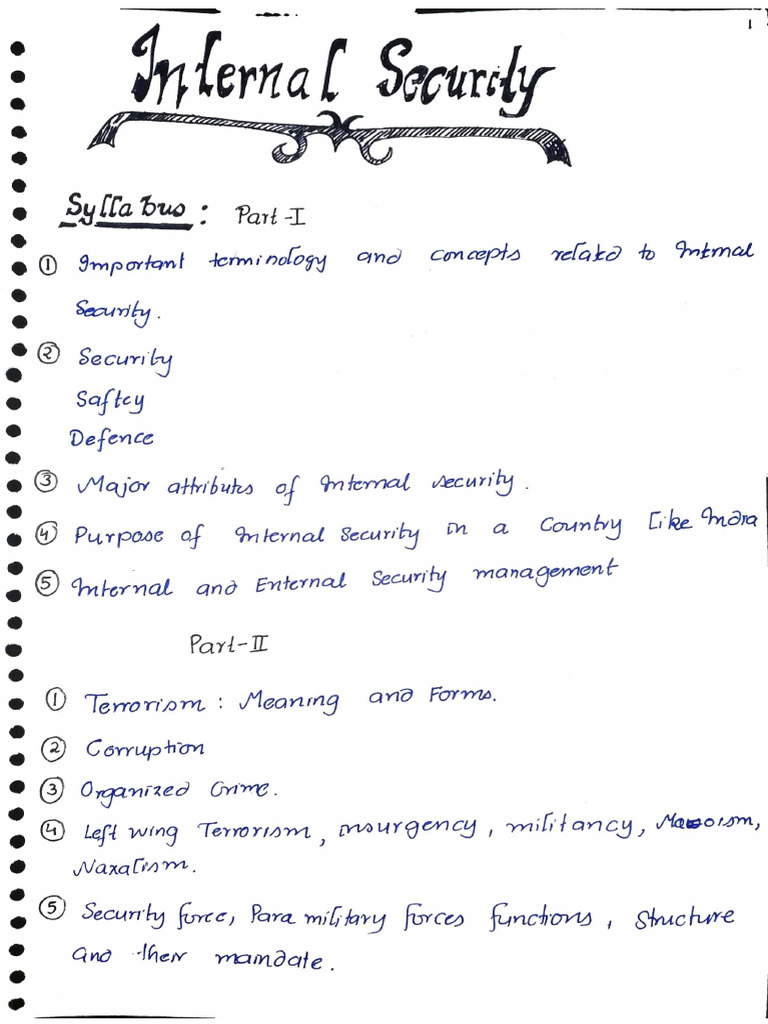 1
Internal Security
Syllabus : Part-I
① Important terminology and concepts related to Internal
Security.
② Security
Saftey
Defence
③ Major attributes of Internal security.
④ Purpose of Internal Security in a Country like India
⑤ Internal and Enternal Security management
Part-II
① Terrorism : Meaning and Forms.
② Corruption
③ Organized Crime.
④ Left wing Terrorism, insurgency, militancy, Maoism,
Naxalism.
⑤ Security force, Para military forces functions, Structure
and their mandate.